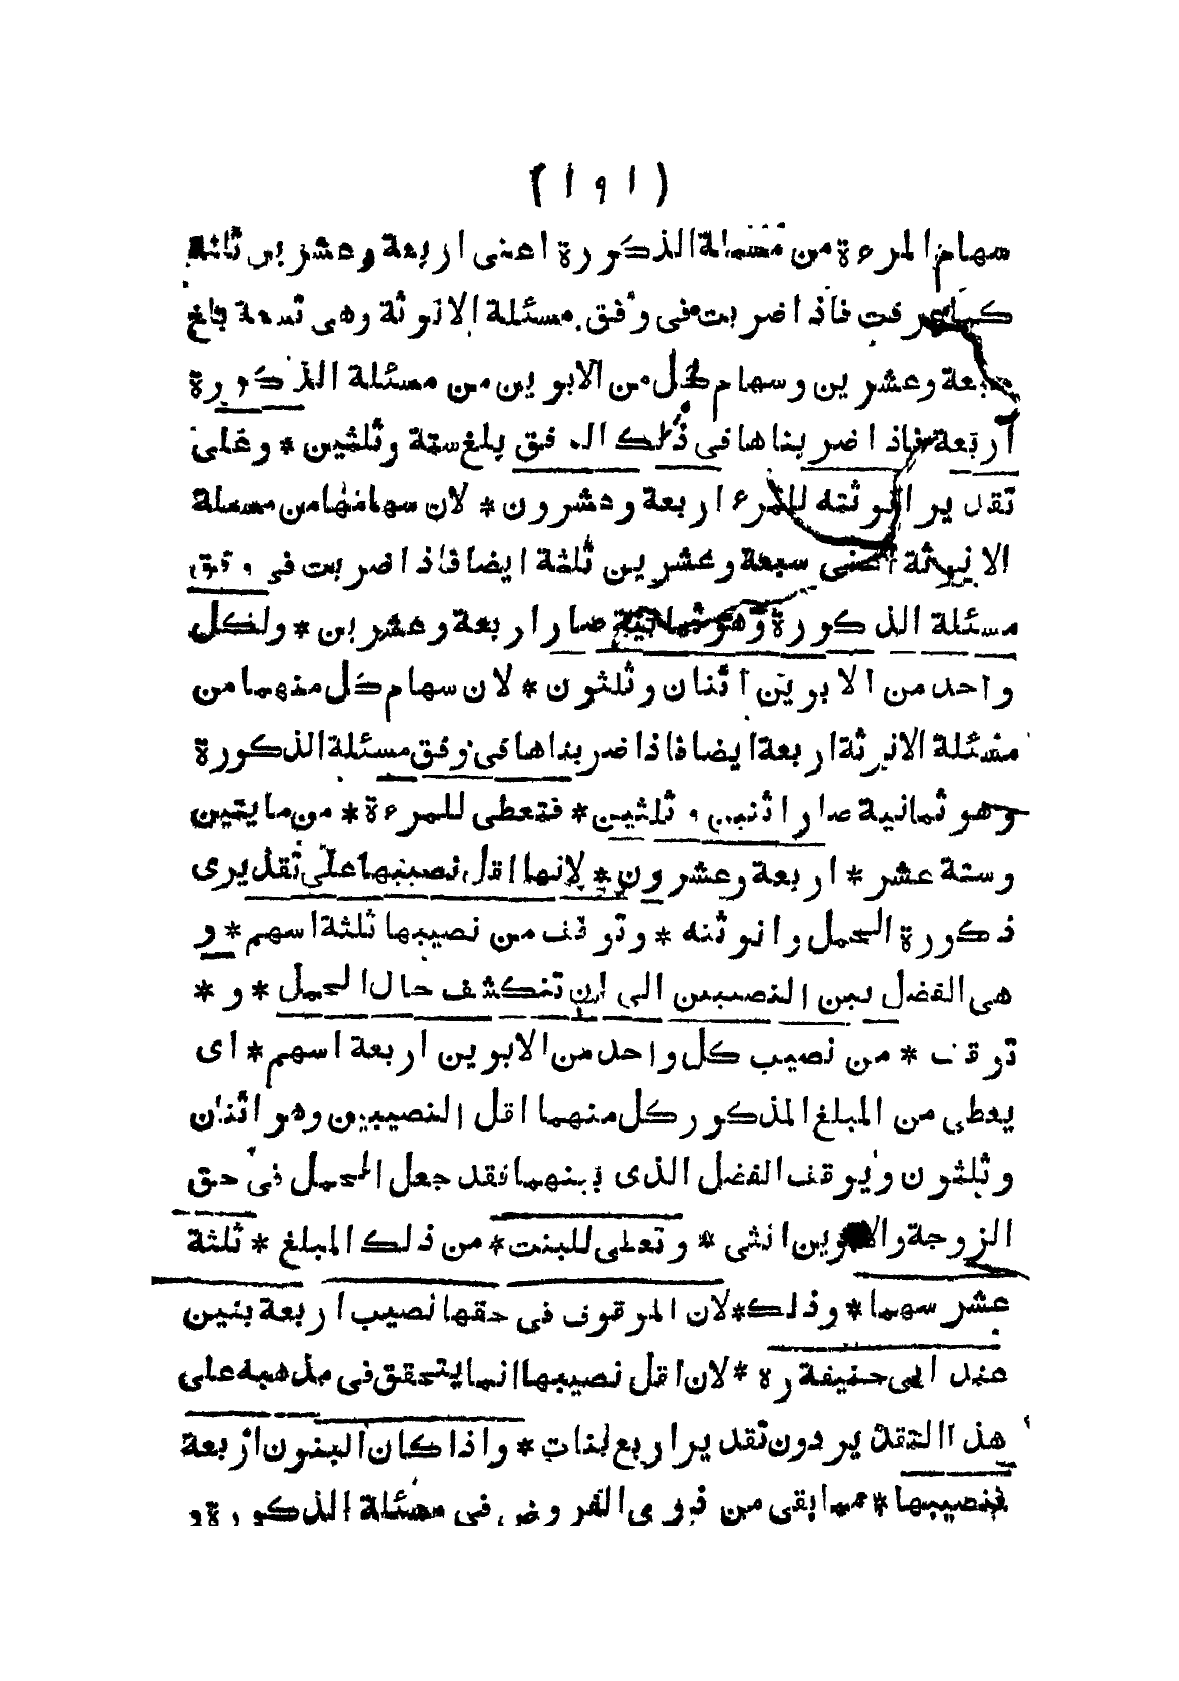 ( ١٩١ )
سهام المرءة من مسئلة الذكورة اعنى اربعة وعشرين ثلثة
كما عرفت فاذا ضربت فى وفق مسئلة الانوثة وهى تسعة بلغ
سبعة وعشرين وسهام كل من الابوين من مسئلة الذكورة
اربعة فاذا ضربناها فى ذلك الوفق بلغ ستة وثلثين * وعلى
تقدير انوثته للمرءة اربعة وعشرون * لان سهامها من مسئلة
الانوثة اعنى سبعة وعشرين ثلثة ايضا فاذا ضربت فى وفق
مسئلة الذكورة وهو ثمانية صار اربعة وعشرين * ولكل
واحد من الابوين اثنان وثلثون * لان سهام كل منهما من
مسئلة الانوثة اربعة ايضا فاذا ضربناها فى وفق مسئلة الذكورة
وهو ثمانية صار اثنين وثلثين * فتعطى للمرءة * من مايتين
وستة عشر * اربعة وعشرون * لانها اقل نصيبها على تقديرى
ذكورة الحمل وانوثته * وتوقف من نصيبها ثلثة اسهم * و
هى الفضل بين النصيبين الى ان تنكشف حال الحمل * و *
توقف * من نصيب كل واحد من الابوين اربعة اسهم * اى
يعطى من المبلغ المذكور كل منهما اقل النصيبين وهو اثنان
وثلثون ويوقف الفضل الذى بينهما فقد جعل الحمل فى حق
الزوجة والابوين انثى * وتعطى للبنت * من ذلك المبلغ * ثلثة
عشر سهما * وذلك * لان الموقوف فى حقها نصيب اربعة بنين
عند ابى حنيفة ره * لان اقل نصيبها انما يتحقق فى مذهبه على
هذا التقدير دون تقدير اربع بنات * واذا كان البنون اربعة
فنصيبها * مما بقى من ذوى الفروض فى مسئلة الذكورة و